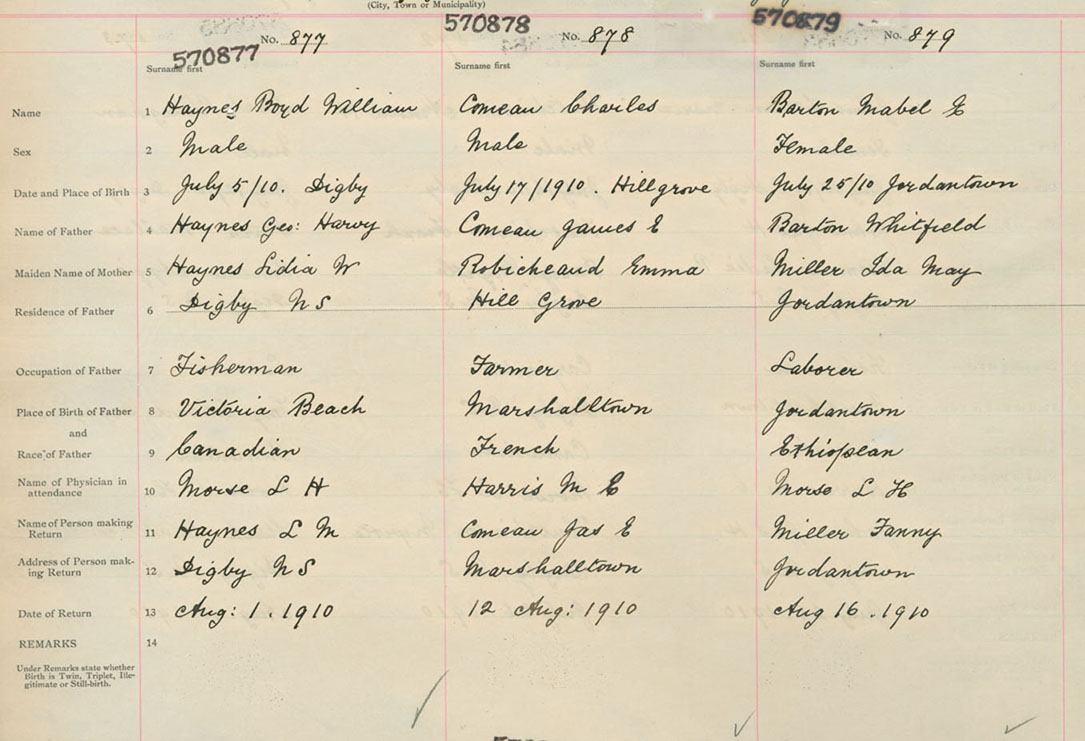 (City, Town or Municipality)
570877 No. 877 570878 No. 878 570879 No. 879
Surname first Surname first Surname first
Name 1 Haynes Boyd William Comeau Charles Barton Mabel E
Sex 2 Male Male Female
Date and Place of Birth 3 July 5/10. Digby July 17/1910. Hillgrove July 25/10 Jordantown
Name of Father 4 Haynes Geo: Harvy Comeau James E Barton Whitfield
Maiden Name of Mother 5 Haynes Lidia W Robicheaud Emma Miller Ida May
Residence of Father 6 Digby N S Hill Grove Jordantown
Occupation of Father 7 Fisherman Farmer Laborer
Place of Birth of Father 8 Victoria Beach Marshalltown Jordantown
and
Race of Father 9 Canadian French Ethiopean
Name of Physician in
attendance 10 Morse L H Harris M E Morse L H
Name of Person making
Return 11 Haynes L M Comeau Jas E Miller Fanny
Address of Person mak-
ing Return 12 Digby N S Marshalltown Jordantown
Date of Return 13 Aug: 1. 1910 12 Aug: 1910 Aug 16. 1910
REMARKS 14
Under Remarks state whether
Birth is Twin, Triplet, Ille-
gitimate or Still-birth.